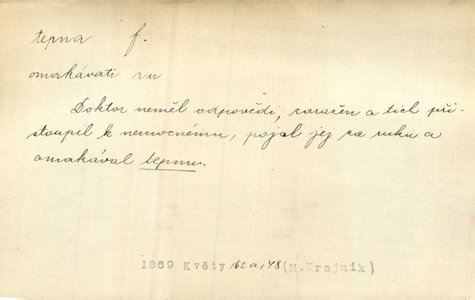 tepna f.
omakávati
Doktor neměl odpovědi; zaražen a tich při-
stoupil k nemocnému, pojal jej za ruku a
omakával tepnu.
1869 Květy 162a,48 (M.Krajník)